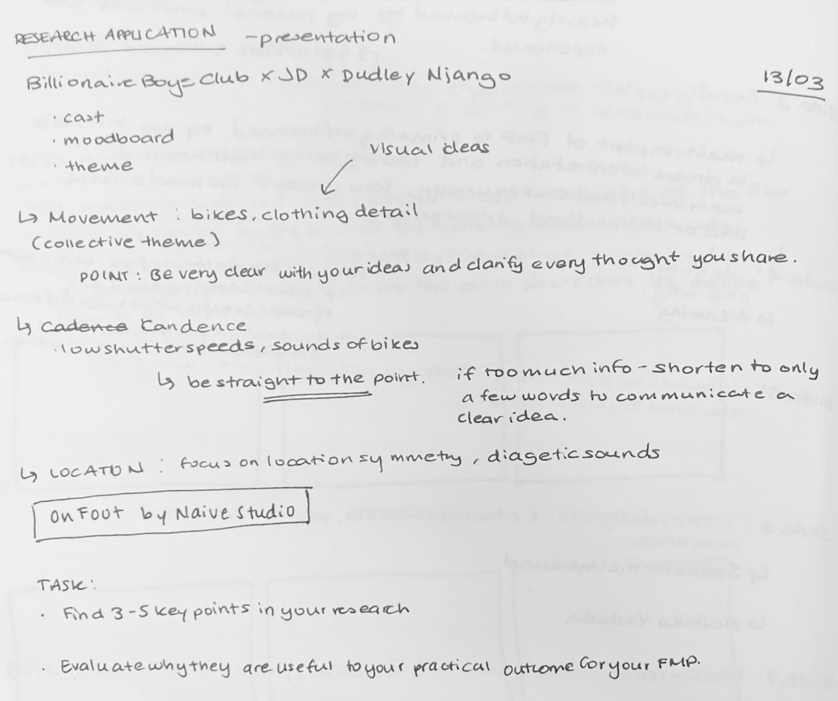 RESEARCH APPLICATION - presentation
Billionaire Boys Club x JD x Dudley Njango
13/03
· cast
· moodboard
· theme
visual ideas
↳ Movement : bikes, clothing detail
(collective theme)
POINT : Be very clear with your ideas and clarify every thought you share.
↳ Cadence Candence
· low shutter speeds, sounds of bikes
↳ be straight to the point.
if too much info - shorten to only
a few words to communicate a
clear idea.
↳ LOCATON : focus on location symmetry, diagetic sounds
On Foot by Naive Studio
TASK:
· Find 3-5 key points in your reseach
· Evaluate why they are useful to your practical outcome for your FMP.